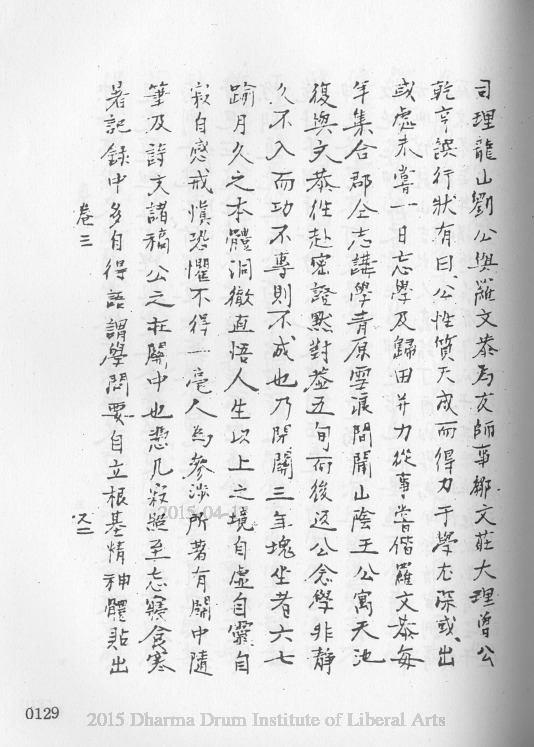 司理龍山劉公與羅文恭為友師事鄒文莊大理曾公
乾亨譔行狀有曰公性質天成而得力于學尤深或出
或處未嘗一日忘學及歸田并力從事嘗偕羅文恭每
年集合郡仝志講學青原雪浪間聞山陰王公寓天池
復與文恭往赴密證黙對益五旬而後返公念學非靜
久不入而功不專則不成也乃閉關三年塊坐者六七
踰月久之本體洞徹直悟人生以上之境自虛自靈自
寂自感戒慎恐懼不得一毫人為參涉所著有關中隨
筆及詩文諸稿公之在關中也憑几寂照至忘寢食寒
暑記錄中多自得語謂學問要自立根基精神體貼出
卷三
2015-04-1
0129
2015 Dharma Drum Institute of Liberal Arts